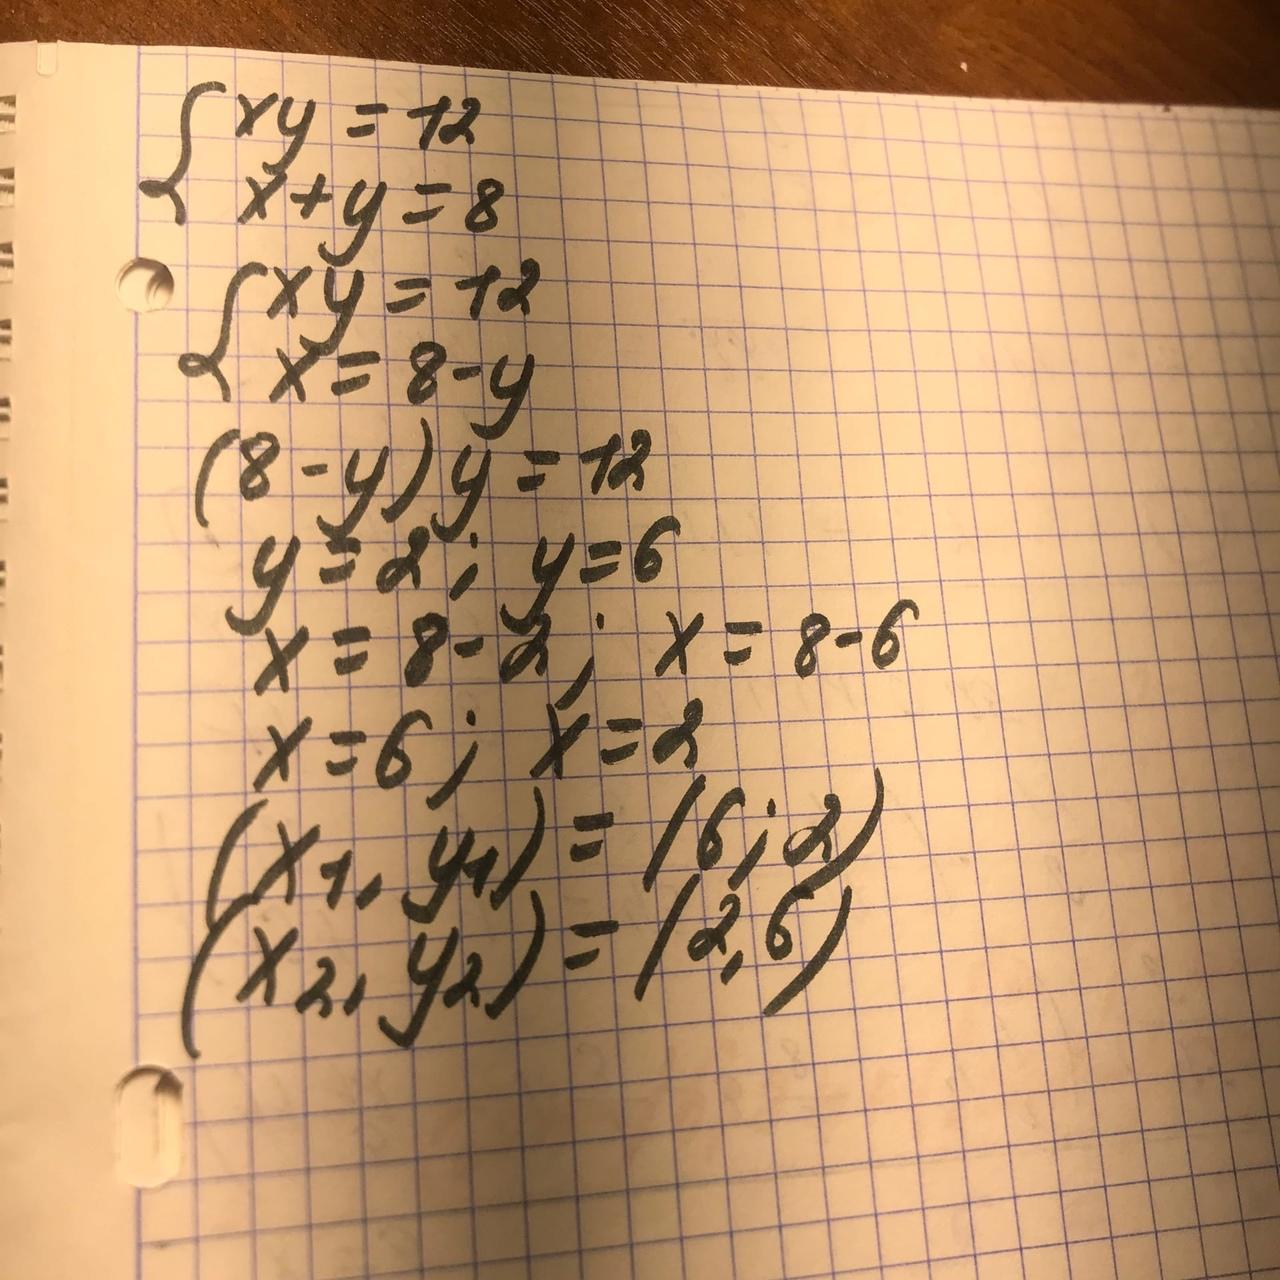 {xy = 12
x+y = 8
{xy = 12
x = 8-y
(8-y)y = 12
y = 2; y = 6
x = 8-2; x = 8-6
x = 6; x = 2
(x₁, y₁) = (6; 2)
(x₂, y₂) = (2, 6)